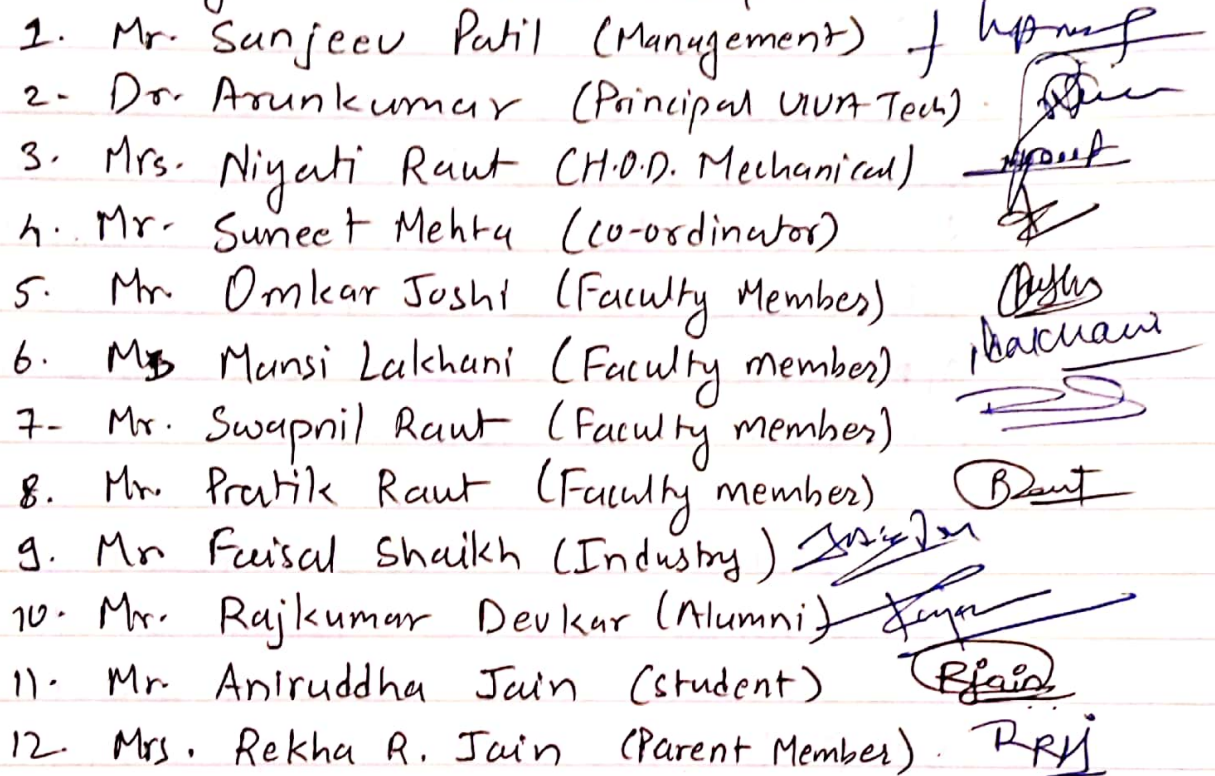 1. Mr. Sanjeev Patil (Management)
2- Dr. Arunkumar (Principal VIVA Tech)
3. Mrs. Niyati Raut (H.O.D. Mechanical)
4. Mr. Suneet Mehta (co-ordinator)
5. Mr. Omkar Joshi (Faculty Member)
6. Ms Mansi Lakhani (Faculty member)
7- Mr. Swapnil Raut (Faculty member)
8. Mr. Pratik Raut (Faculty member)
9. Mr Faisal Shaikh (Industry)
10. Mr. Rajkumar Devkar (Alumni)
11. Mr. Aniruddha Jain (student) Rjain
12. Mrs. Rekha R. Jain (Parent Member). RRJ